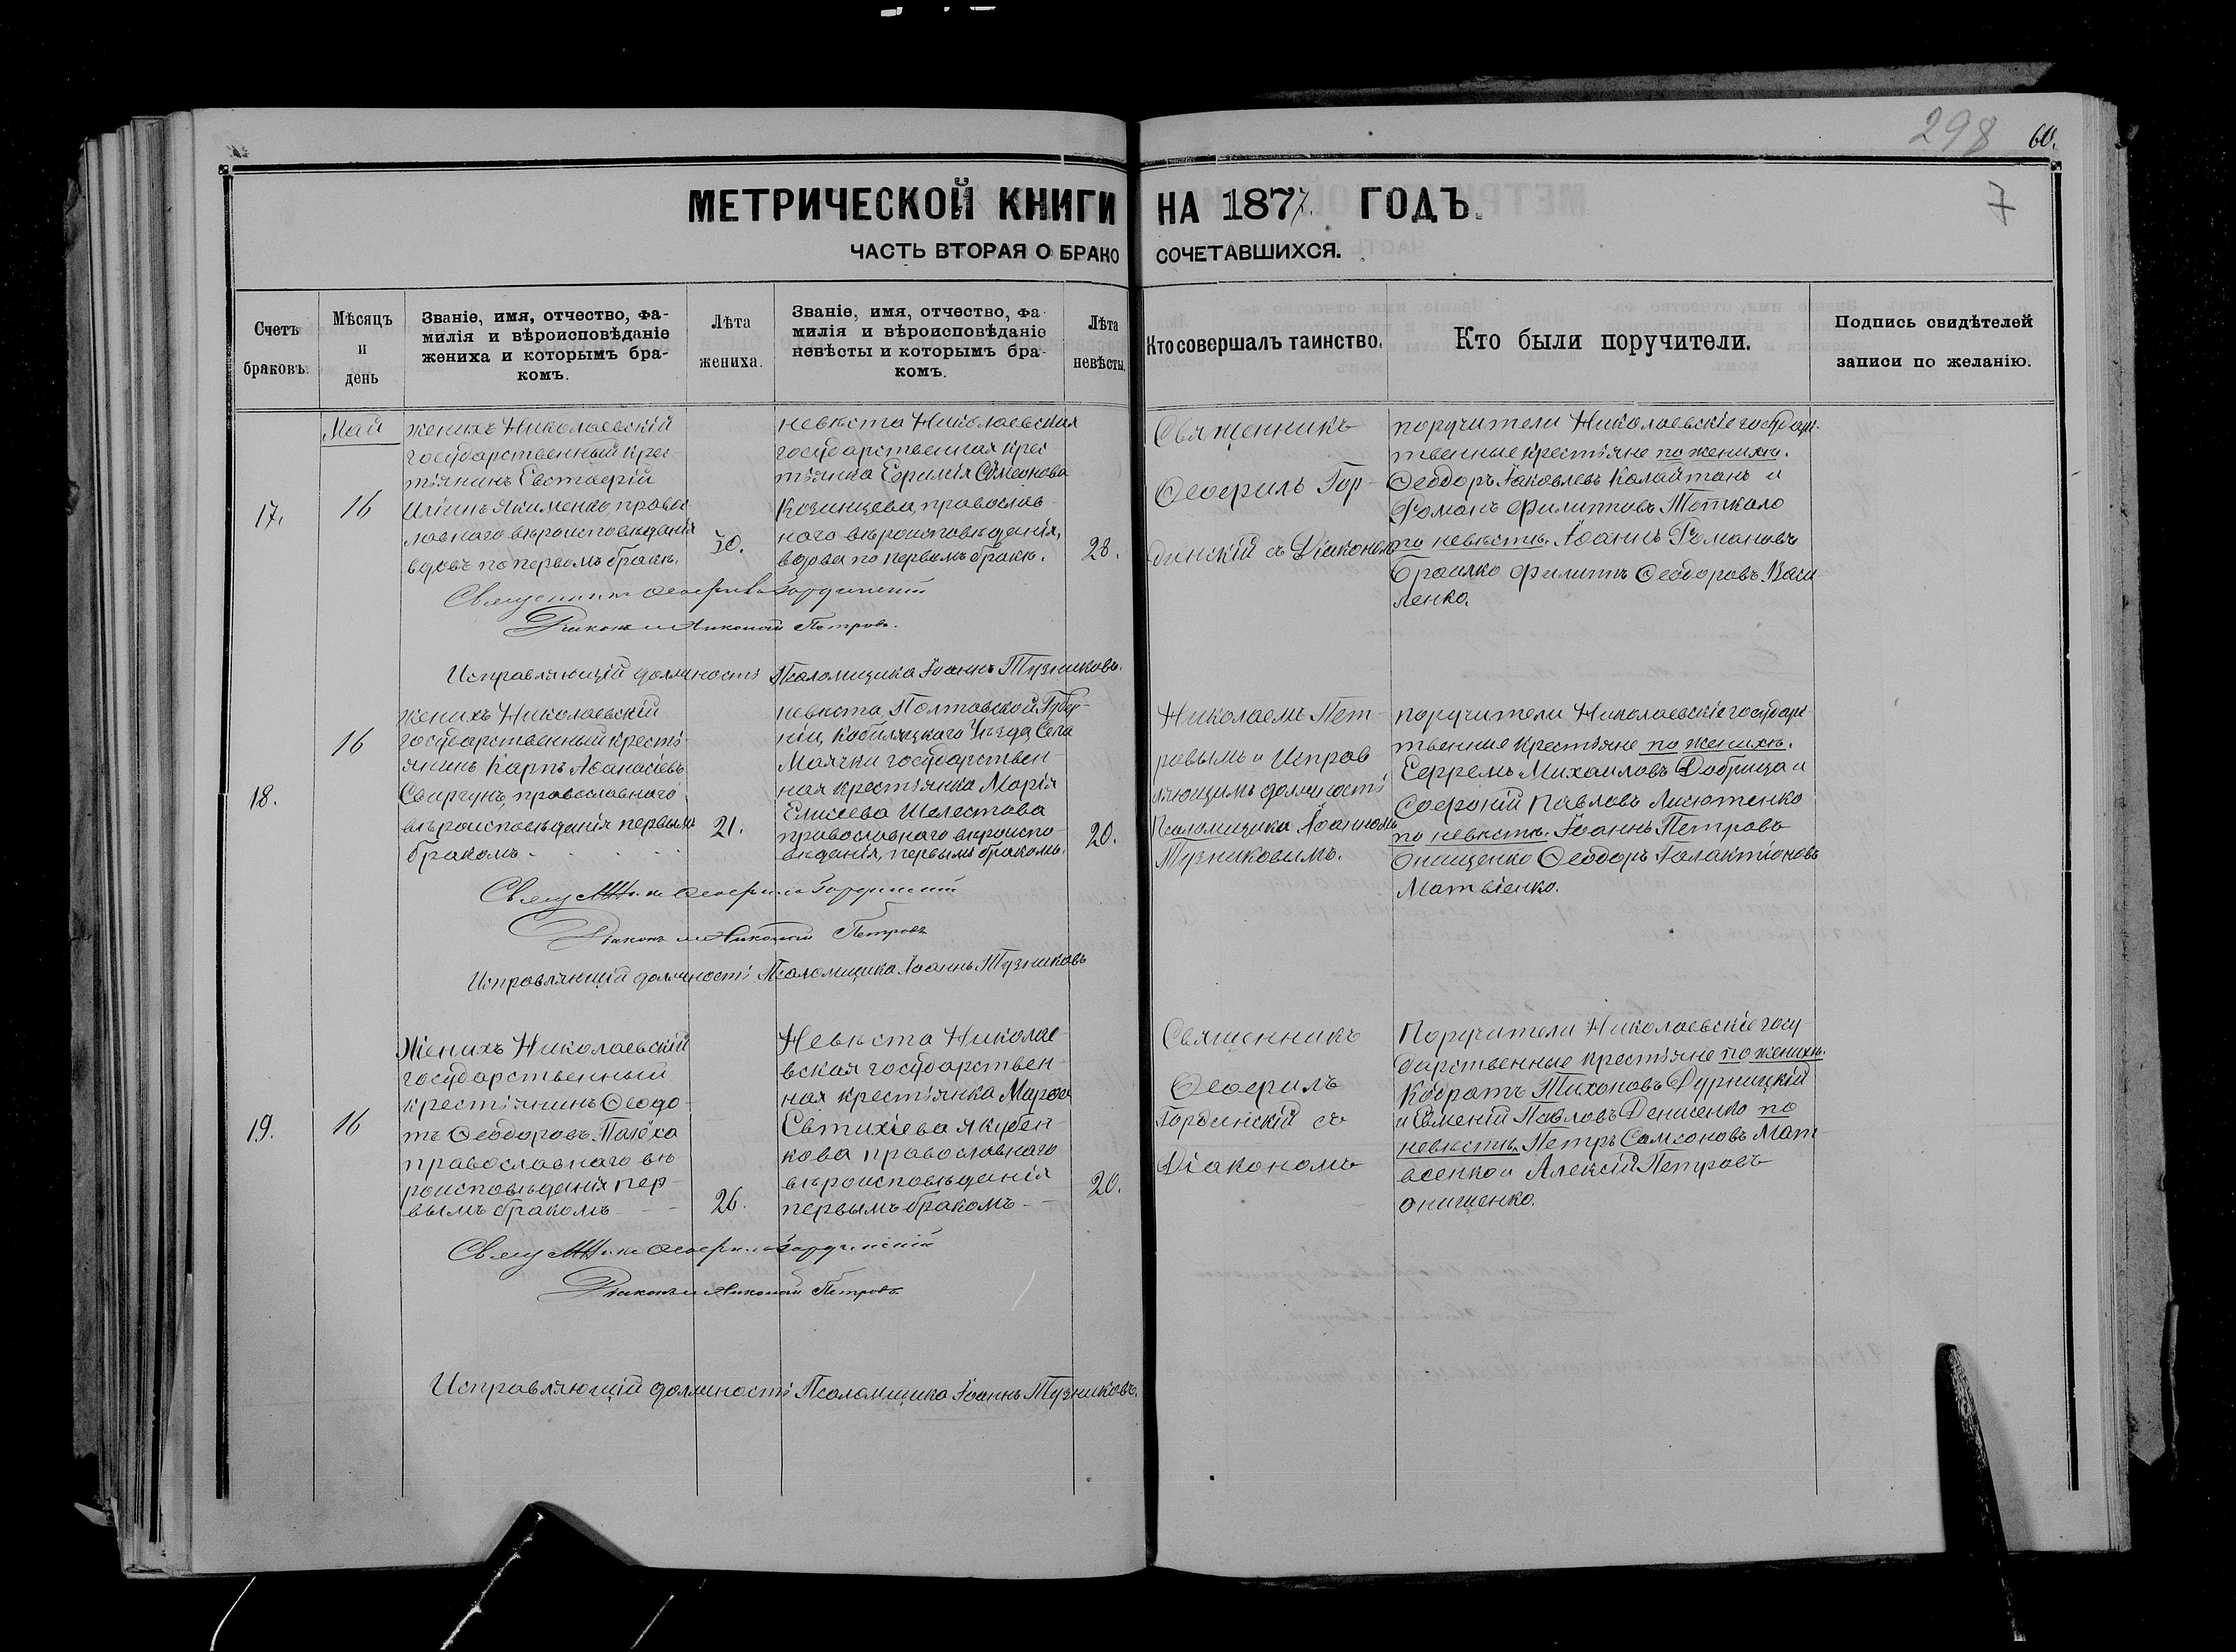 298 60.
7
МЕТРИЧЕСКОЙ КНИГИ НА 1877. ГОДЪ.
ЧАСТЬ ВТОРАЯ О БРАКО СОЧЕТАВШИХСЯ.
Счетъ браковъ.
Мѣсяцъ и день
Званіе, имя, отчество, фа-
милія и вѣроисповѣданіе
жениха и которымъ бра-
комъ.
Лѣта жениха.
Званіе, имя, отчество, фа
милія и вѣроисповѣданіе
невѣсты и которымъ бра-
комъ.
Лѣта невѣсты.
Кто совершалъ таинство.
Кто были поручители.
Подпись свидѣтелей
записи по желанію.
17.
Май
16
женихъ Николаевскій
государственный крес
тьянинъ Евстафій
Иліинъ Якименко, правос
лавнаго вѣроисповѣданія
вдовъ по первомъ бракѣ.
30.
невѣста Николаевская
государственная крес
тьянка Евфимія Симеонова
Козинцева, православ-
наго вѣроисповѣданія,
вдова по первымъ бракѣ.
28.
Священникъ
Ѳеофилъ Гор-
динскій съ Діакономъ
поручители Николаевскіе государ-
ственные крестьяне по женихѣ.
Ѳеодоръ Іаковлевъ Калайтанъ и
Романъ Филипповъ
по невѣстѣ. Іоаннъ Романовъ
Браилко Филиппъ Ѳеодоровъ Васи-
ленко.
Священникъ Ѳеофилъ Гординскій
Діаконъ Николай Петровъ.
Исправляющій должность Псаломщика Іоаннъ Тузниковъ.
18.
16
женихъ Николаевскій
государственный кресть-
янинъ Карпъ Аѳанасіевъ
Свиргунъ, православнаго
вѣроисповѣданія первымъ
бракомъ.
21.
невѣста Полтавской Губер-
ніи, Кобиляцкаго Уѣзда, Села
Маячки государствен-
ная крестьянка Марія
Елисеева Шелестова
православнаго вѣроиспо-
вѣданія, первымъ бракомъ.
20.
Николаемъ Пет-
ровымъ и Исправ
ляющимъ должность
Псаломщика Іоанномъ
Тузниковымъ.
поручители Николаевскіе государс
твенные крестьяне по женихѣ.
Ефремъ Михаиловъ Добрица и
Софроній Павловъ Лисютенко
по невѣстѣ. Іоаннъ Петровъ
Онищенко Ѳеодоръ Галактіоновъ
Матвіенко.
Священникъ Ѳеофилъ Гординскій
Діаконъ Николай Петровъ
Исправляющій должность Псаломщика Іоаннъ Тузниковъ
19.
16
Женихъ Николаевскій
государственный
крестьянинъ Ѳеодо-
тъ Ѳеодоровъ Палёха
православнаго вѣ
роисповѣданія пер-
вымъ бракомъ
26.
Невѣста Николае-
вская государствен-
ная крестьянка Марѳа
Евтихіева Якубен-
кова православнаго
вѣроисповѣданія
первымъ бракомъ
20.
Священникъ
Ѳеофилъ
Гординскій съ
Діакономъ
Поручители Николаевскіе госу-
дарственные крестьяне по женихѣ.
Кодратъ Тихоновъ Дурницкій
и Евменій Павловъ Денисенко по
невѣстѣ. Петръ Самсоновъ Мат-
веенко и Алексій Петровъ
Онищенко.
Священникъ Ѳеофилъ Гординскій
Діаконъ Николай Петровъ
Исправляющій должность Псаломщика Іоаннъ Тузниковъ.